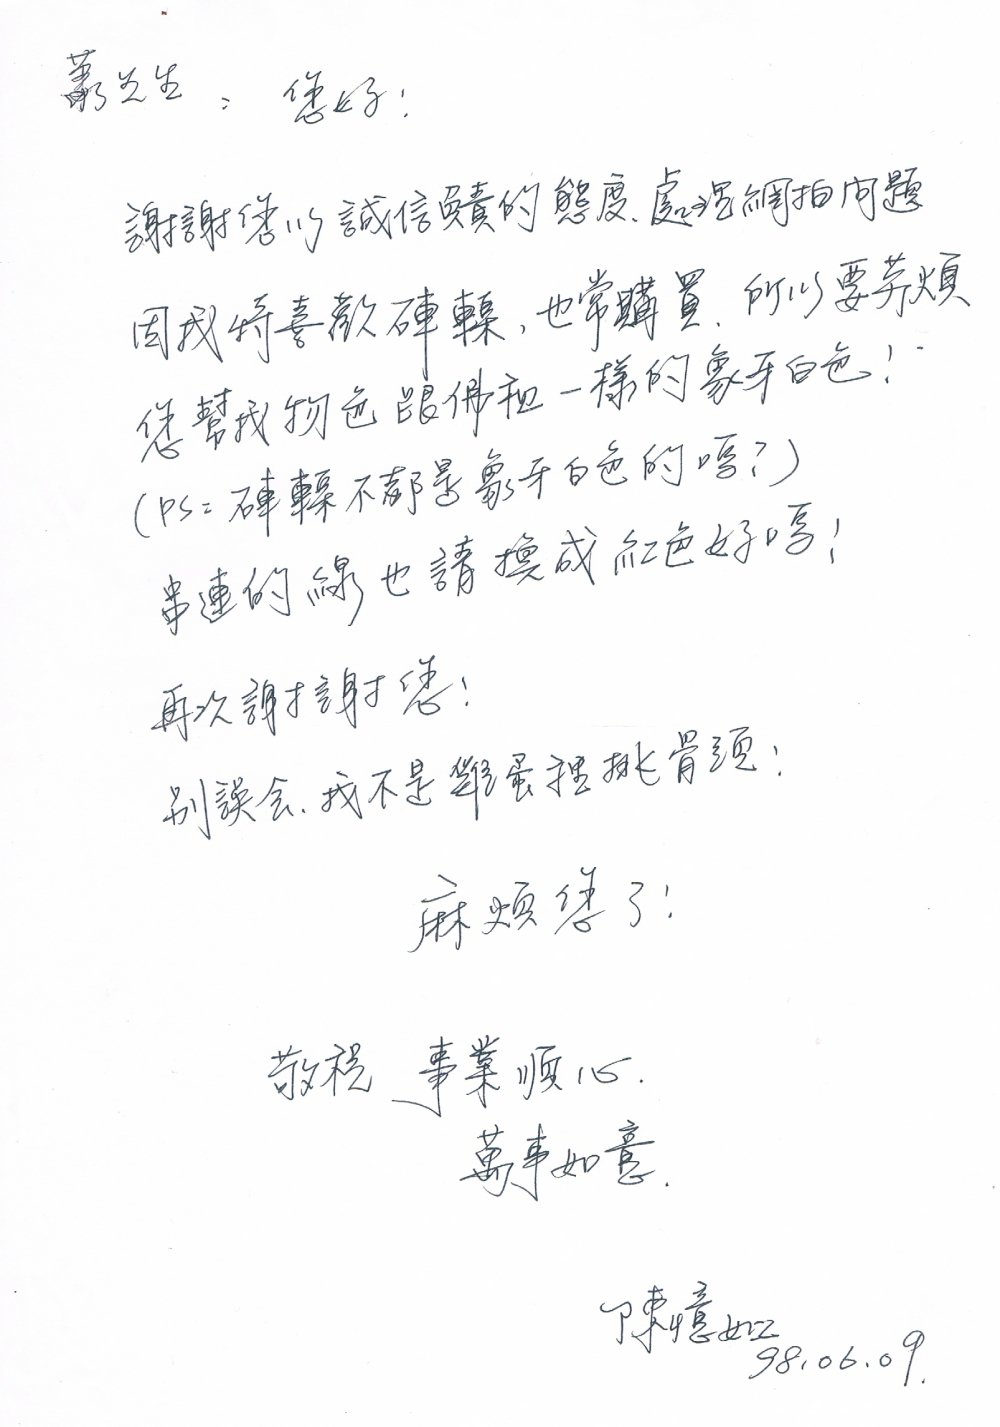 蕭先生：您好！
謝謝您以誠信負責的態度、處理網拍問題
因我特喜歡硨轈，也常購買、所以要芥煩
您幫我物色跟佛祖一樣的象牙白色！
（PS：硨轈不都是象牙白色的嗎？）
串連的線也請換成紅色好嗎！
再次謝謝您！
別誤会、我不是雞蛋裡挑骨頭！
麻煩您了！
敬祝 事業順心.
萬事如意.
陳憶如
98.06.09.